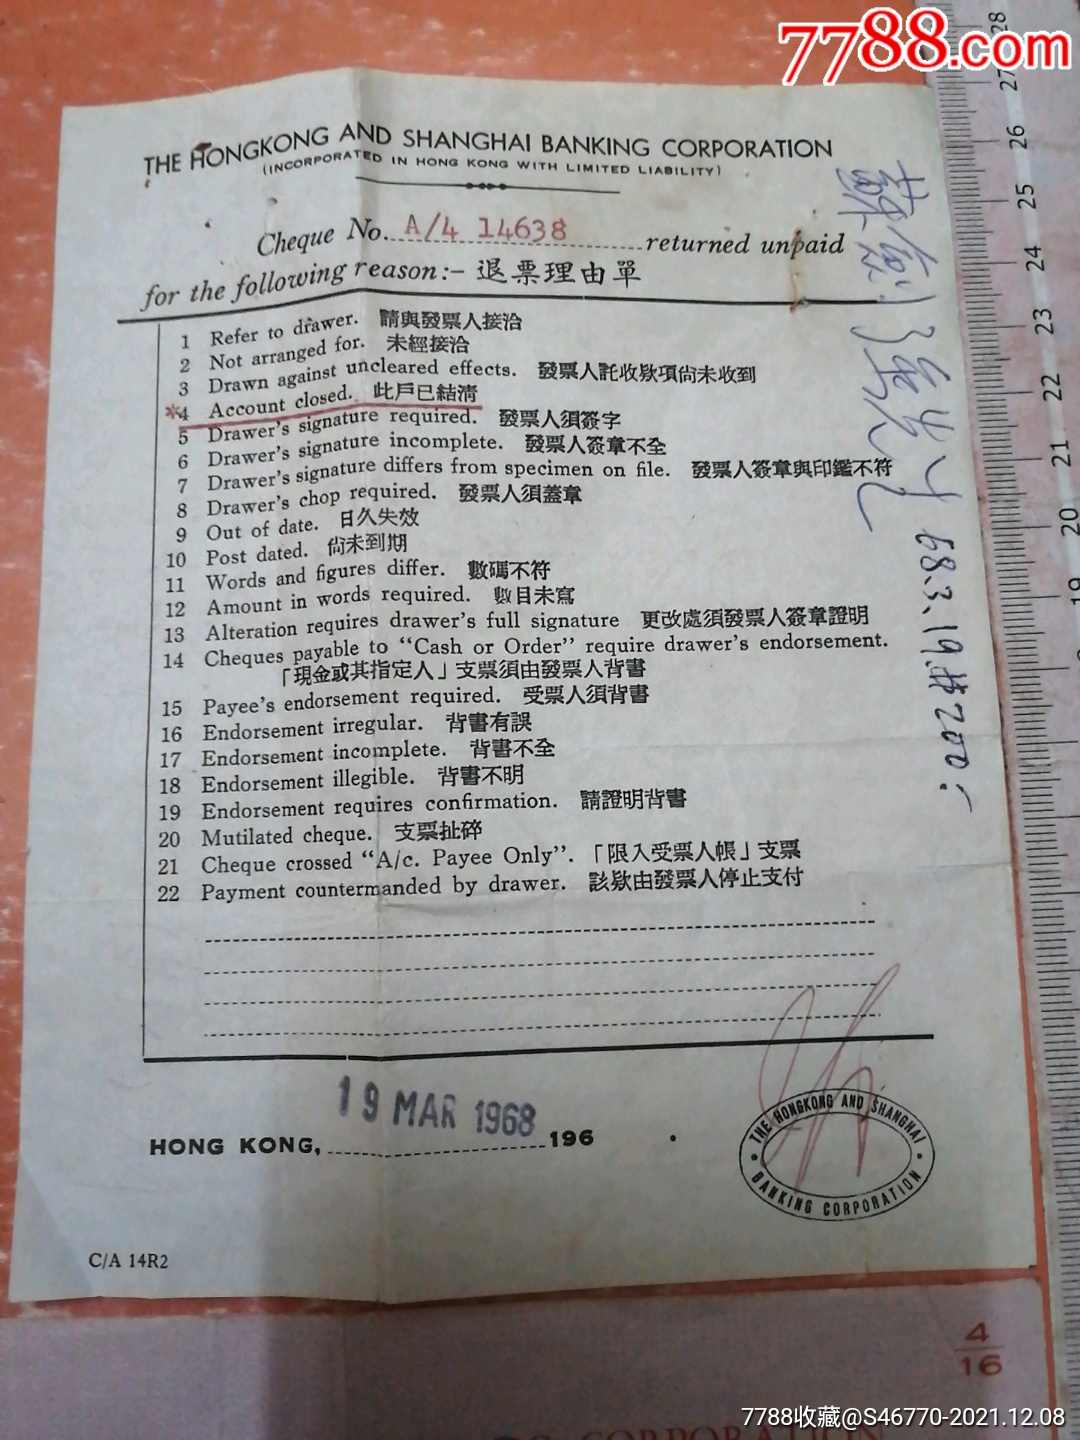 7788.com
THE HONGKONG AND SHANGHAI BANKING CORPORATION
(INCORPORATED IN HONG KONG WITH LIMITED LIABILITY)
Cheque No. A/4 14638 returned unpaid
for the following reason:- 退票理由單
1 Refer to drawer. 請與發票人接洽
2 Not arranged for. 未經接洽
3 Drawn against uncleared effects. 發票人託收欵項尙未收到
*4 Account closed. 此戶已結清
5 Drawer's signature required. 發票人須簽字
6 Drawer's signature incomplete. 發票人簽章不全
7 Drawer's signature differs from specimen on file. 發票人簽章與印鑑不符
8 Drawer's chop required. 發票人須蓋章
9 Out of date. 日久失效
10 Post dated. 尙未到期
11 Words and figures differ. 數碼不符
12 Amount in words required. 數目未寫
13 Alteration requires drawer's full signature 更改處須發票人簽章證明
14 Cheques payable to “Cash or Order” require drawer's endorsement.
「現金或其指定人」支票須由發票人背書
15 Payee's endorsement required. 受票人須背書
16 Endorsement irregular. 背書有誤
17 Endorsement incomplete. 背書不全
18 Endorsement illegible. 背書不明
19 Endorsement requires confirmation. 請證明背書
20 Mutilated cheque. 支票扯碎
21 Cheque crossed “A/c. Payee Only”. 「限入受票人帳」支票
22 Payment countermanded by drawer. 該欵由發票人停止支付
68.3.19.
19 MAR 1968
HONG KONG, 196
THE HONGKONG AND SHANGHAI
BANKING CORPORATION
C/A 14R2
28
27
26
25
24
23
22
21
20
19
4
16
CORPORATION
7788收藏@S46770-2021.12.08